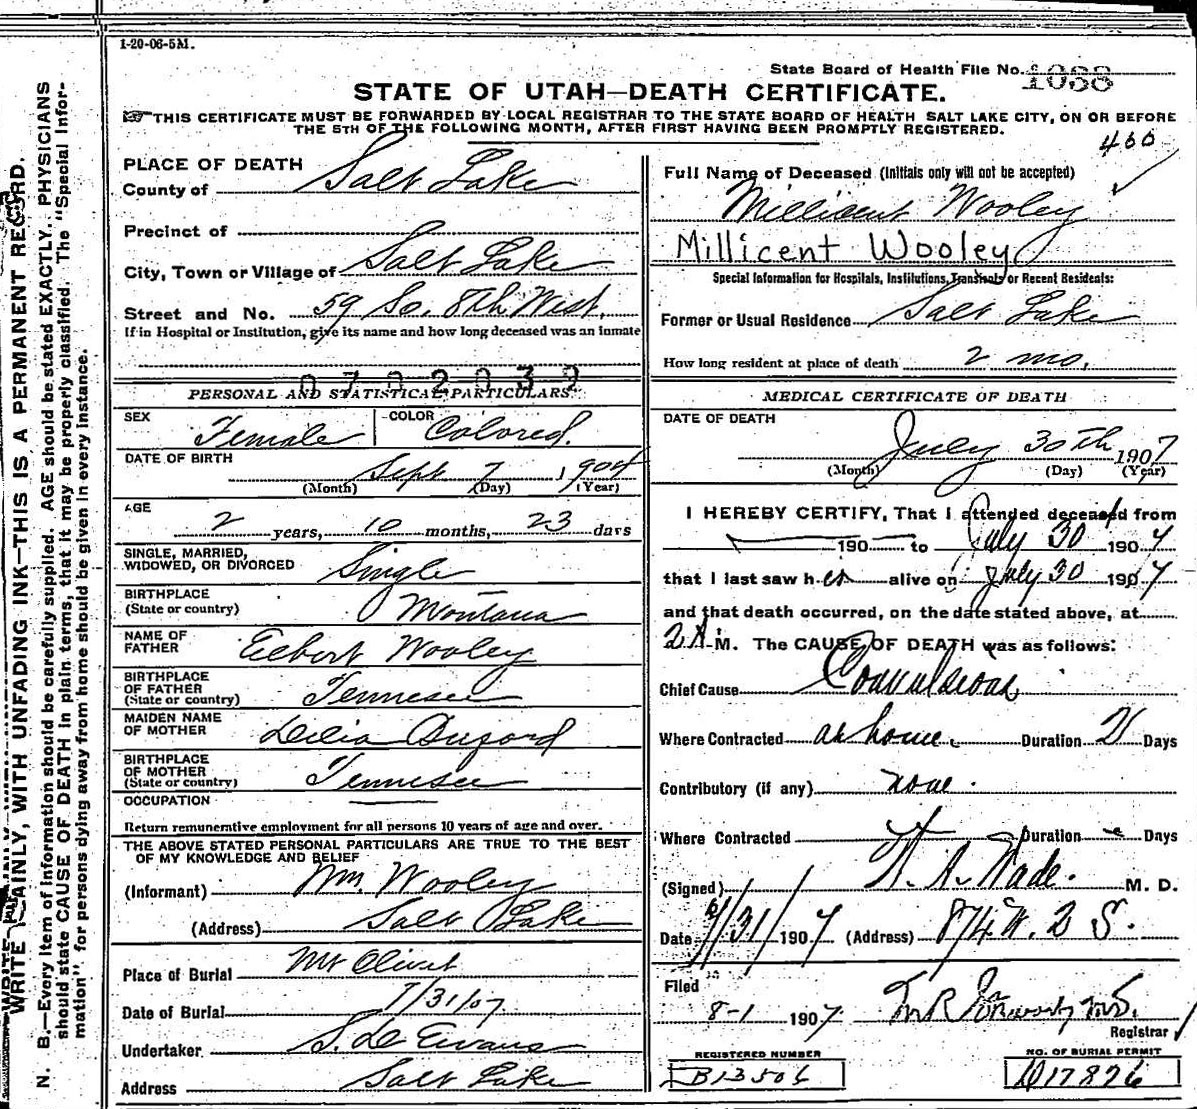 1-20-06-5M.
State Board of Health File No. 1088
STATE OF UTAH—DEATH CERTIFICATE.
THIS CERTIFICATE MUST BE FORWARDED BY LOCAL REGISTRAR TO THE STATE BOARD OF HEALTH SALT LAKE CITY, ON OR BEFORE
THE 5TH OF THE FOLLOWING MONTH, AFTER FIRST HAVING BEEN PROMPTLY REGISTERED.
PLACE OF DEATH
County of Salt Lake
Precinct of
City, Town or Village of Salt Lake
Street and No. 59 So. 8th West.
If in Hospital or Institution, give its name and how long deceased was an inmate
0702032
PERSONAL AND STATISTICAL PARTICULARS.
SEX Female COLOR Colored.
DATE OF BIRTH Sept 7 1904
(Month) (Day) (Year)
AGE
2 years, 10 months, 23 days
SINGLE, MARRIED,
WIDOWED, OR DIVORCED Single
BIRTHPLACE
(State or country) Montana
NAME OF
FATHER Elbert Wooley
BIRTHPLACE
OF FATHER
(State or country) Tennesee
MAIDEN NAME
OF MOTHER Delia
BIRTHPLACE
OF MOTHER
(State or country) Tennesee
OCCUPATION
Return remunerative employment for all persons 10 years of age and over.
THE ABOVE STATED PERSONAL PARTICULARS ARE TRUE TO THE BEST
OF MY KNOWLEDGE AND BELIEF
(Informant) Wm Wooley
(Address) Salt Lake
Place of Burial Mt Olivet
Date of Burial 7/31/07
Undertaker S. D. Evans
Address Salt Lake
460
Full Name of Deceased (Initials only will not be accepted)
Millicent Wooley
Millicent Wooley
Special Information for Hospitals, Institutions, Transients or Recent Residents:
Former or Usual Residence Salt Lake
How long resident at place of death 2 mo.
MEDICAL CERTIFICATE OF DEATH
DATE OF DEATH
July 30th 1907
(Month) (Day) (Year)
I HEREBY CERTIFY, That I attended deceased from
190 to July 30 1907
that I last saw her alive on July 30 1907
and that death occurred, on the date stated above, at
2 A.M. The CAUSE OF DEATH was as follows:
Chief Cause Convulsions
Where Contracted at home. Duration Days
Contributory (if any) none.
Where Contracted Duration - Days
(Signed) Wade. M. D.
Date 7/31/1907 (Address) 874 W. 2 S.
Filed
8-1 1907. M.D.
Registrar
REGISTERED NUMBER
B13506
NO. OF BURIAL PERMIT
D17826
WRITE PLAINLY, WITH UNFADING INK—THIS IS A PERMANENT RECORD.
N. B.—Every item of information should be carefully supplied. AGE should be stated EXACTLY. PHYSICIANS
should state CAUSE OF DEATH in plain terms, that it may be properly classified. The "Special Infor-
mation" for persons dying away from home should be given in every instance.